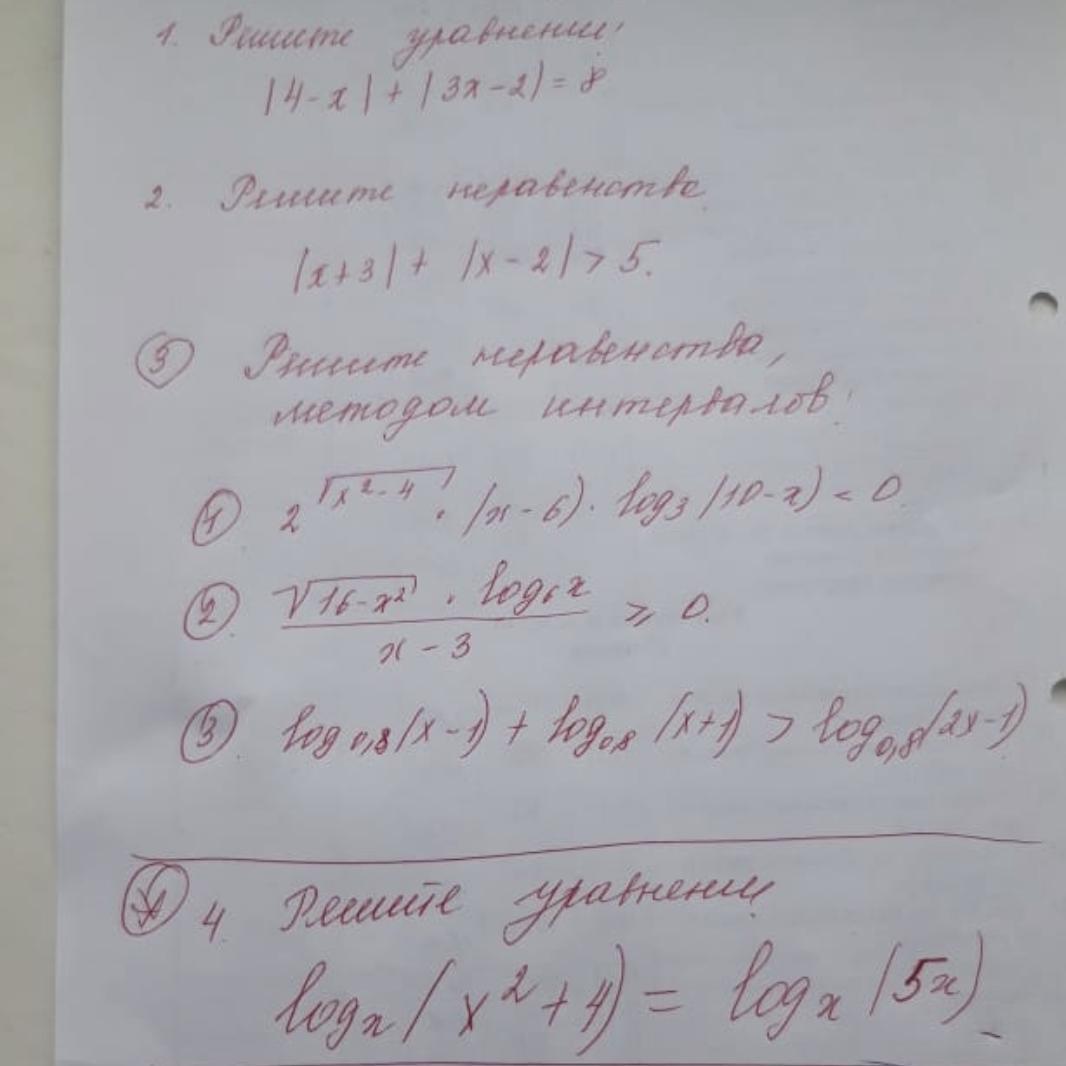 1. Решите уравнение:
|4-x| + |3x-2| = 8
2. Решите неравенства
|x+3| + |x-2| > 5.
3 Решите неравенства,
методом интервалов:
1 2^√(x²-4) · (x-6) · log₃(10-x) < 0.
2 (√(16-x²) · log₆x)/(x-3) ≥ 0.
3 log₀,₈(x-1) + log₀,₈(x+1) > log₀,₈(2x-1)
4. Решите уравнение
logₓ(x²+4) = logₓ(5x)